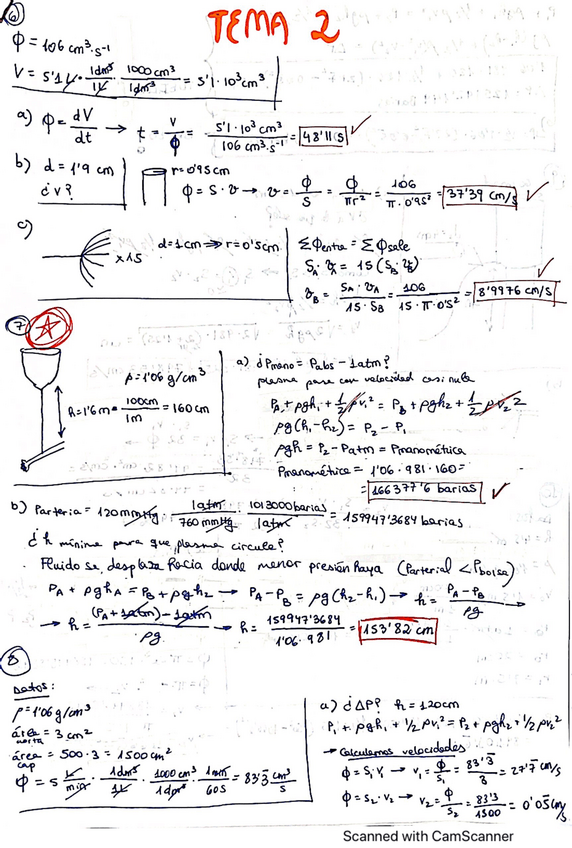 TEMA 2
6
Φ = 106 cm³·s⁻¹
V = 5'1 L · 1dm³/1L · 1000 cm³/1dm³ = 5'1·10³cm³
a) Φ = dV/dt → t = V/Φ = 5'1·10³ cm³/106 cm³·s⁻¹ = 48'11 s
b) d = 1'9 cm
¿v?
r=0'95cm
Φ = S·v → v = Φ/S = Φ/πr² = 106/π·0'95² = 37'39 cm/s
c)
x15
d=1cm ⇒ r=0'5cm
ΣΦentra = ΣΦsale
S_A · v_A = 15 (S_B · v_B)
v_B = S_A · v_A/15·S_B = 106/15·π·0'5² = 8'9976 cm/s
7
ρ = 1'06 g/cm³
h = 1'6m · 100cm/1m = 160cm
a) ¿Pmano = Pabs - 1atm?
plasma pasa con velocidad casi nula
P_A + ρgh₁ + 1/2 ρv₁² = P_B + ρgh₂ + 1/2 ρv₂²
ρg(h₁-h₂) = P₂ - P₁
ρgh = P₂ - Patm = Pmanométrica
Pmanométrica = 1'06 · 981 · 160 =
= 166377'6 barias
b) Parteria = 120mmHg · 1atm/760mmHg · 1013000barias/1atm = 159947'3684 barias
¿h mínima para que plasma circule?
Fluido se desplaza hacia donde menor presión haya (Parterial < Pbolsa)
P_A + ρgh_A = P_B + ρgh₂ → P_A - P_B = ρg(h₂-h₁) → h = P_A - P_B/ρg
→ h = (P_A + 1atm) - 1atm/ρg → h = 159947'3684/1'06·981 = 153'82 cm
8
Datos:
ρ = 1'06 g/cm³
área aorta = 3 cm²
área cap = 500·3 = 1500 cm²
Φ = 5 L/min · 1dm³/1L · 1000 cm³/1dm³ · 1min/60s = 83'3 cm³/s
a) ¿ΔP? h = 120cm
P₁ + ρgh₁ + 1/2 ρv₁² = P₂ + ρgh₂ + 1/2 ρv₂²
→ Calculamos velocidades
Φ = S₁·V₁ → v₁ = Φ/S₁ = 83'3/3 = 27'7 cm/s
Φ = S₂·V₂ → v₂ = Φ/S₂ = 83'3/1500 = 0'05 cm/s
Scanned with CamScanner